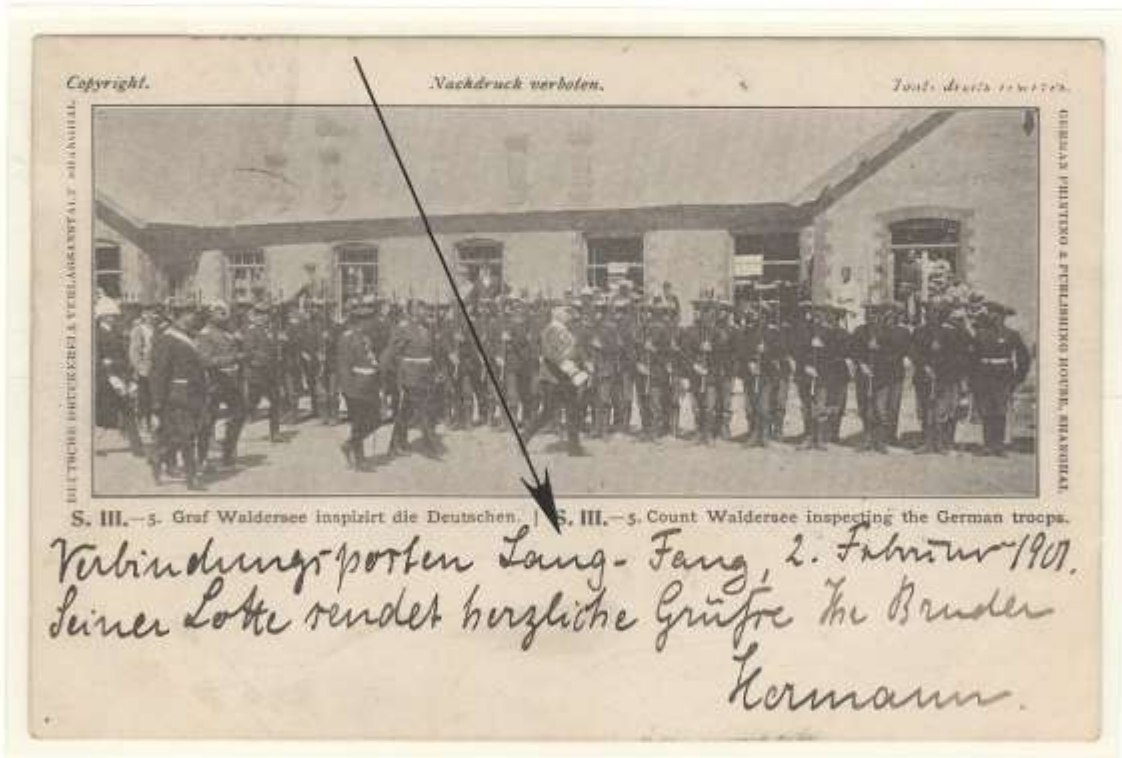 Copyright.
Nachdruck verboten.
Tout droits reserves.
DEUTSCHE DRUCKEREI & VERLAGSANSTALT SHANGHAI.
GERMAN PRINTING & PUBLISHING HOUSE, SHANGHAI.
S. III.—5. Graf Waldersee inspizirt die Deutschen. | S. III.—5. Count Waldersee inspecting the German troops.
Verbindungsposten Lang-Fang, 2. Februar 1901.
Seiner Lotte sendet herzliche Grüße Ihr Bruder
Hermann.